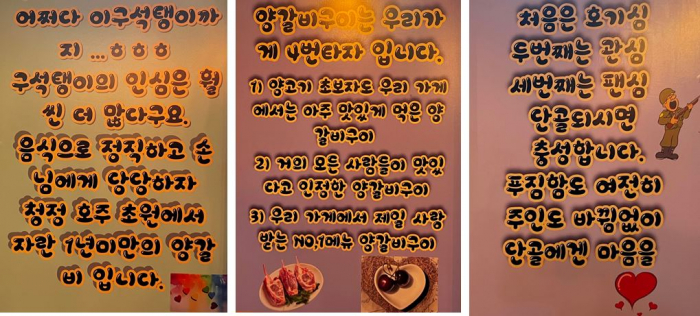 어쩌다 이구석탱이까
지 ...ㅎㅎㅎ
구석탱이의 인심은 훨
씬 더 많다구요.
음식으로 정직하고 손
님에게 당당하자
청정 호주 초원에서
자란 1년미만의 양갈
비 입니다.
양갈비구이는 우리가
게 4번타자 입니다.
1) 양고기 초보자도 우리 가게
에서는 아주 맛있게 먹은 양
갈비구이
2) 거의 모든 사람들이 맛있
다고 인정한 양갈비구이
3) 우리 가게에서 제일 사랑
받는 NO,1메뉴 양갈비구이
처음은 호기심
두번째는 관심
세번째는 팬심
단골되시면
충성합니다.
푸짐함도 여전히
주인도 바뀜없이
단골에겐 마음을